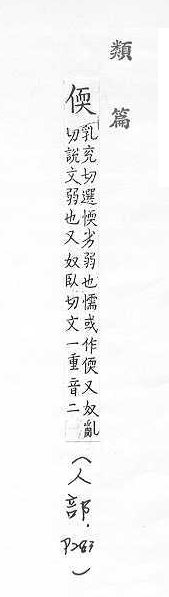 類篇
偄
乳兗切選愞劣弱也懦或作偄又奴亂
切說文弱也又奴臥切文一重音二
(人部.
P283)